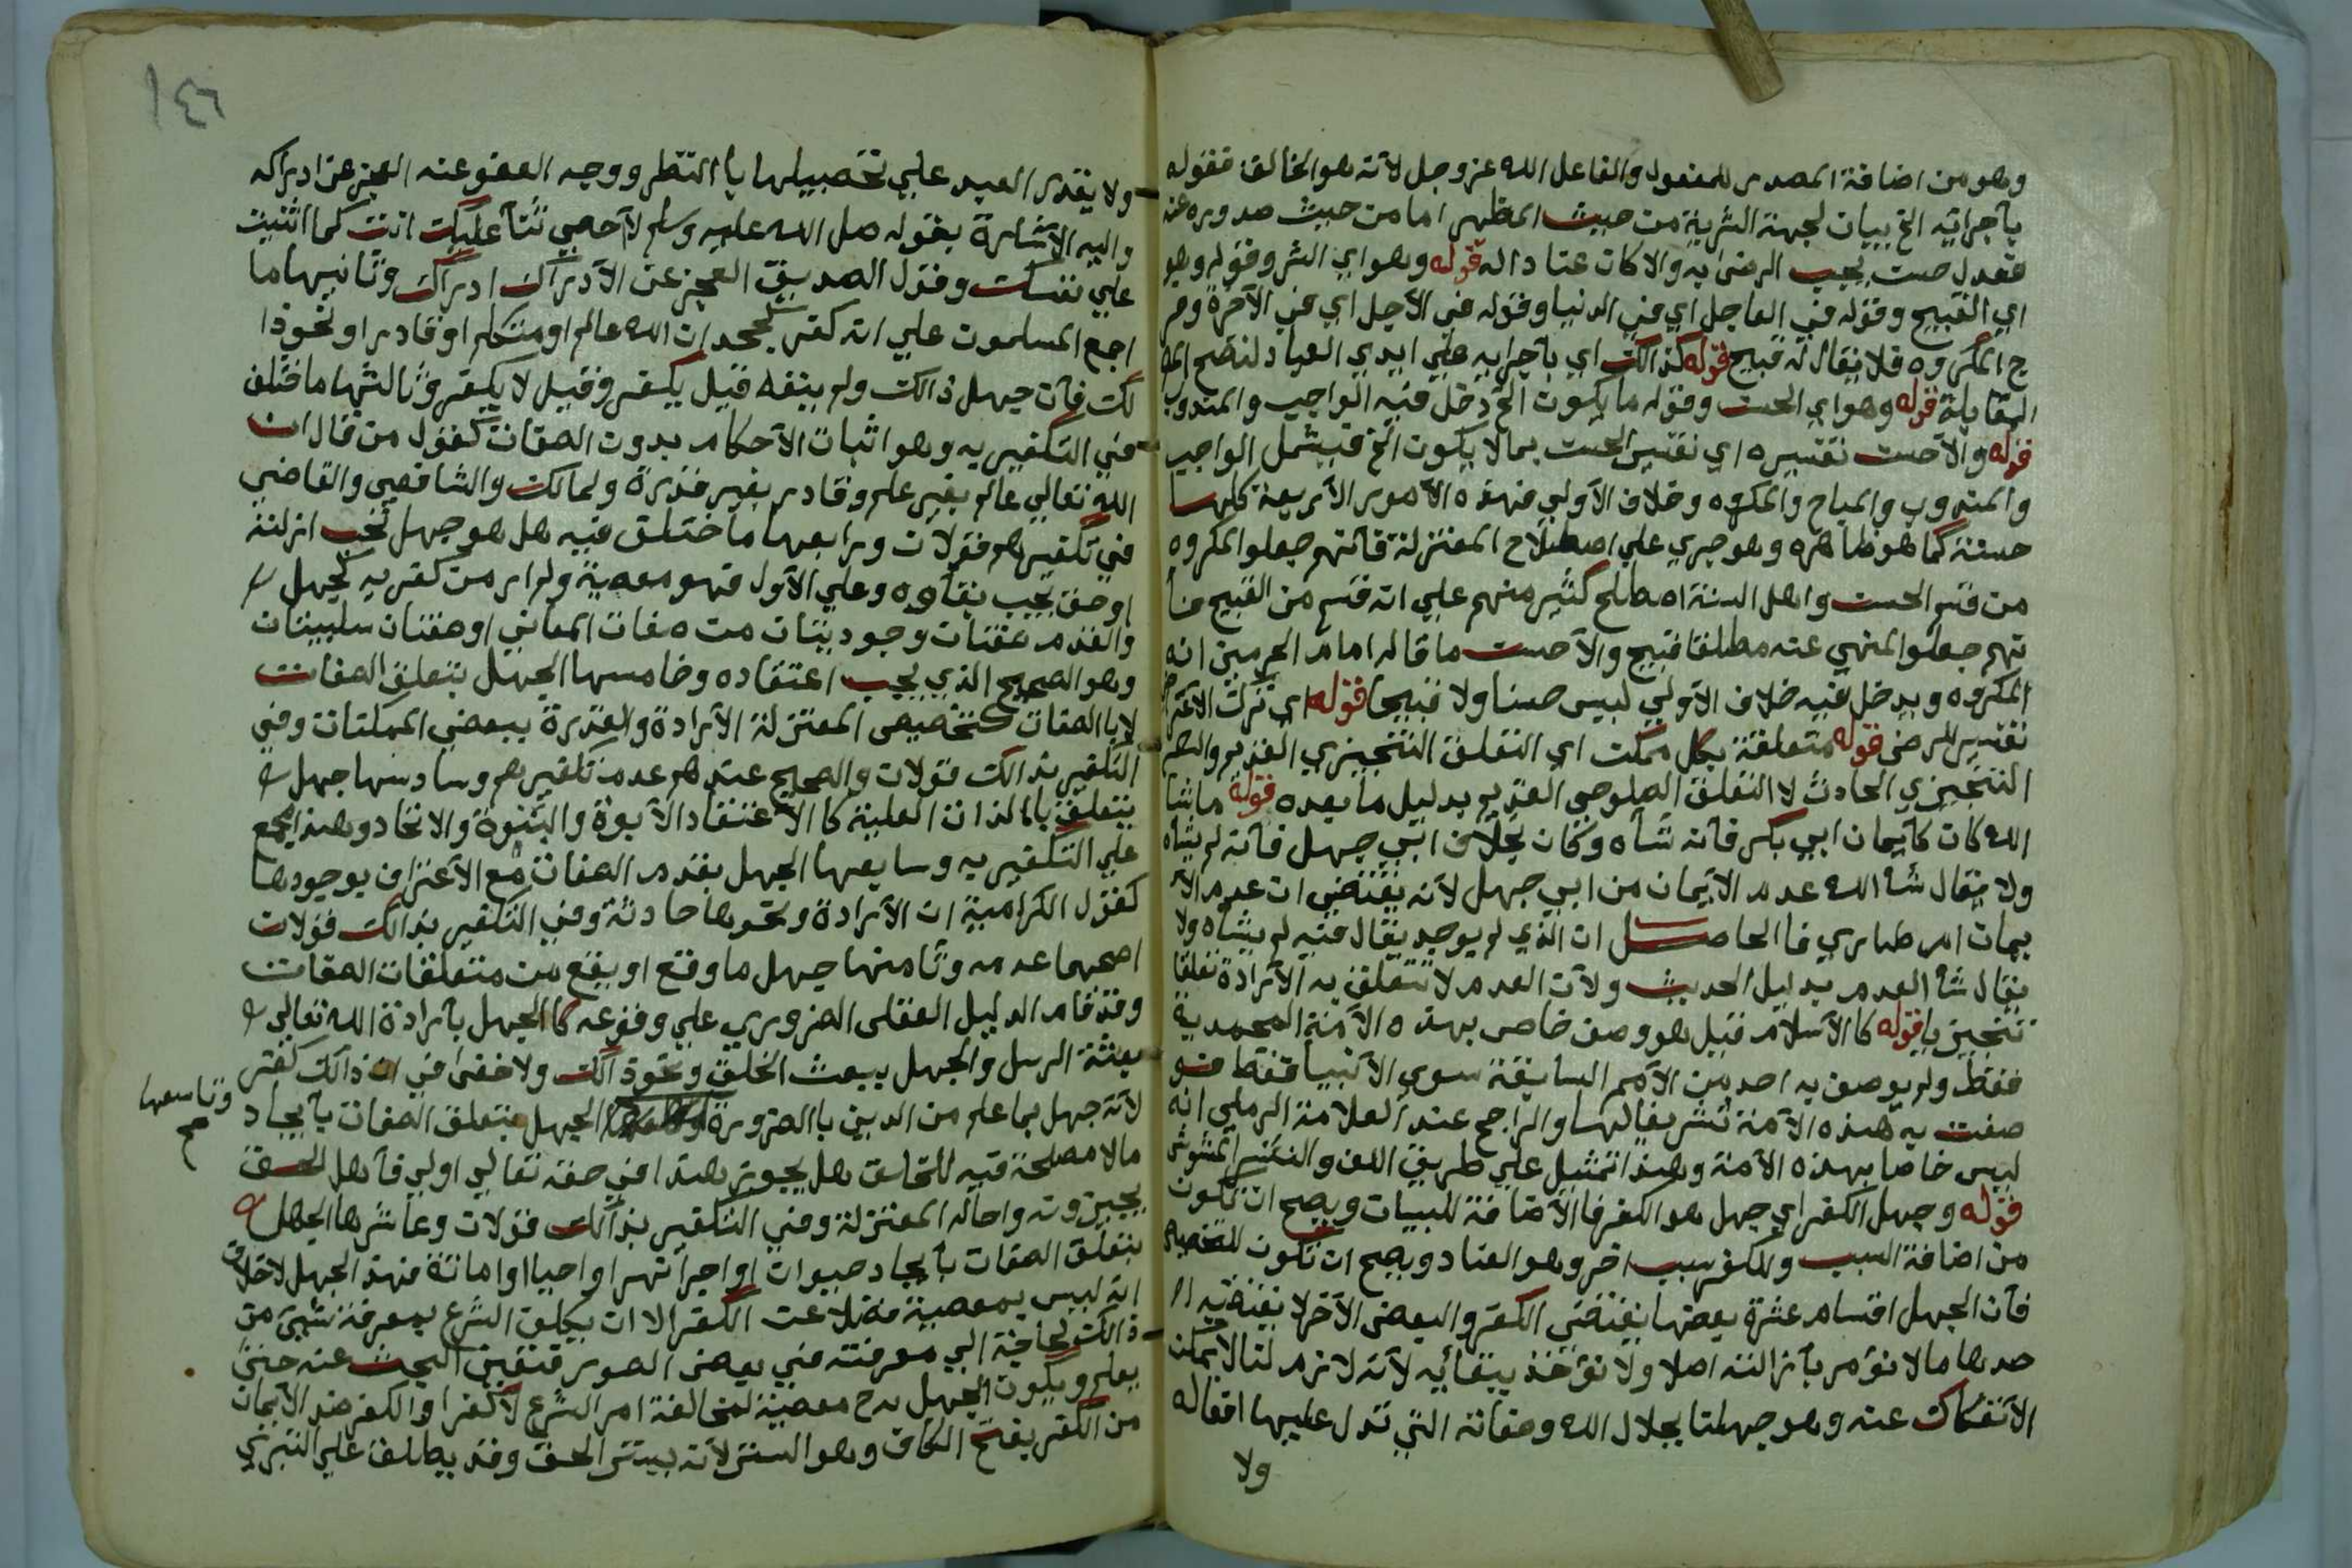 وهو من اضافة المصدر للمفعول والفاعل الله عز وجل لانه هو الخالق فقوله
باجرائه الخ بيان لجهة الشرية من حيث المظهر اما من حيث صدوره عنه
فعدل حسن يجب الرضى به والا كان عنادا له قوله وهو اي الشر وقوله وهو
اي القبيح وقوله في العاجل اي في الدنيا وقوله في الاجل اي في الآخرة وخر
ج المكروه فلا يقال له قبيح قوله كذالك اي باجرائه علي ايدي العباد لتصح
المقابلة قوله وهو اي الحسن وقوله ما يكون الخ دخل فيه الواجب والمندوب
قوله والاحسن تفسيره اي تفسير الحسن بما لا يكون الخ فيشمل الواجب
والمندوب والمباح والمكروه وخلاف الاولي فهذه الامور الاربعة كلها
حسنة كما هو ظاهره وهو جري علي اصطلاح المعتزلة فانهم جعلوا المكروه
من قسم الحسن واهل السنة اصطلح كثير منهم علي انه قسم من القبيح فا
نهم جعلوا المنهي عنه مطلقا قبيح والاحسن ما قاله امام الحرمين انه
المكروه ويدخل فيه خلاف الاولي ليس حسنا ولا قبيحا قوله اي ترك الاعتراض
تفسير للرضى قوله متعلقة بكل ممكن اي التعلق التنجيزي القديم والصلو
التنجيزي الحادث لا التعلق الصلوحي القديم بدليل ما بعده قوله ما شا
الله كان كايمان ابي بكر فانه شاه وكان بخلاف ابي جهل فانه لم يشاه
ولا يقال شا الله عدم الايمان من ابي جهل لانه يقتضي ان عدم الا
يمان امر طاري فالحاصل ان الذي لم يوجد يقال فيه لم يشاه ولا
يقال شا العدم بدليل الحديث ولان العدم لا تتعلق به الارادة تعلقا
تنجيزيا قوله كالاسلام قيل هو وصف خاص بهذه الامة المحمدية
فقط ولم يوصف به احد من الامم السابقة سوي الانبيا فقط فو
صفت به هذه الامة تشريفا لها والراجح عند العلامة الرملي انه
ليس خاصا بهذه الامة وهذا تمثيل علي طريق اللف والنشر المشوش
قوله وجهل الكفر اي جهل هو الكفر فالاضافة للبيان ويصح ان تكون
من اضافة السبب وللكفر سبب اخر وهو العناد ويصح ان تكون للتخصيص
فان الجهل اقسام عشرة بعضها يقتضي الكفر والبعض الاخر لا يقتضيه ا
حدها ما لا نؤمر بازالته اصلا ولا نؤخذ ببقائه لانه لازم لنا لا يمكن
الانفكاك عنه وهو جهلنا بجلال الله وصفاته التي تدل عليها افعاله
ولا
١٤٦
ولا يقدر العبد علي تحصيلها بالنظر ووجه العفو عنه العجز عن ادراكه
واليه الاشارة بقوله صلى الله عليه وسلم لا احصي ثنآ عليك انت كما اثنيت
علي نفسك وقول الصديق العجز عن الادراك ادراك وثانيها ما
اجمع المسلمون علي انه كفر كجحد ان الله عالم او متكلم او قادر او نحو ذا
لك فان جهل ذالك ولم ينفه قيل يكفر وقيل لا يكفر وثالثها ما اختلف
في التكفير به وهو اثبات الاحكام بدون الصفات كقول من قال ان
الله تعالي عالم بغير علم وقادر بغير قدرة ولمالك والشافعي والقاضي
في تكفيرهم قولان ورابعها ما اختلف فيه هل هو جهل تجب ازلته
او حق يجب بقاؤه وعلي الاول فهو معصية ولم ار من كفر به كجهل
والقدم صفتان وجوديتان من صفات المعاني او صفتان سلبيتان
وهو الصحيح الذي يجب اعتقاده وخامسها الجهل بتعلق الصفات
لا بالصفات كتخصيص المعتزلة الارادة والقدرة ببعض الممكنات وفي
التكفير بذالك قولان والصحيح عندهم عدم تكفيرهم وسادسها جهل
يتعلق بالذات العلية كالاعتقاد الابوة والبنوة والاتحاد وهذا مجمع
علي التكفير به وسابعها الجهل بقدم الصفات مع الاعتراف بوجودها
كقول الكرامية ان الارادة ونحوها حادثة وفي التكفير بذالك قولان
اصحهما عدمه وثامنها جهل ما وقع او يقع من متعلقات الصفات
وقد قام الدليل العقلى الضروري علي وقوعه كالجهل بارادة الله تعالى
بعثة الرسل والجهل ببعث الخلق ونحو ذالك ولا خفى في ان ذالك كفر
لانه جهل بما علم من الدين بالضرورة الجهل بتعلق الصفات بايجاد
وتاسعها صح
مالا مصلحة فيه للخلق هل يجوز هذا في حقه تعالي اولى فاهل الحق
يجيزونه واحاله المعتزلة وفي التكفير بذالك قولان وعاشرها الجهل
بتعلق الصفات بايجاد حيوان او اجرا نهر او احيا او اماتة فهذا الجهل لا خلاف
انه ليس بمعصية فضلا عن الكفر الا ان يكلف الشرع بمعرفة شي من
ذالك لحاجة الي معرفته في بعض الصور فتعين البحث عنه حتى
يعلم ويكون الجهل به ح معصية لمخالفة امر الشرع لا كفرا والكفر ضد الايمان
من الكفر بفتح الكاف وهو الستر لانه يستر الحق وقد يطلق علي التبري